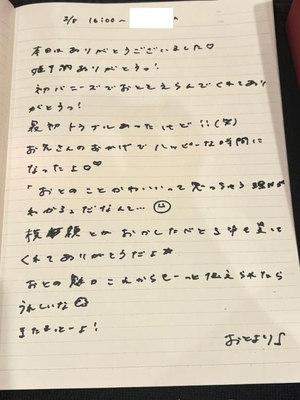 2/8 16:00〜
本日はありがとうございました♡
ありがとうっ!
初バニーズでおとをえらんでくれてあり
がとうっ!
最初トラブルあったけど!!(笑)
お兄さんのおかげでハッピーな時間に
なったよ♡♡
「おとのことかわいいって思っちゃう理由が
わかる」だなんて…
とかおかしたべとる
くれてありがとうだよ★
おとの魅力これからもーっと伝えられたら
うれしいな
またまっとーよ!
おとより♪